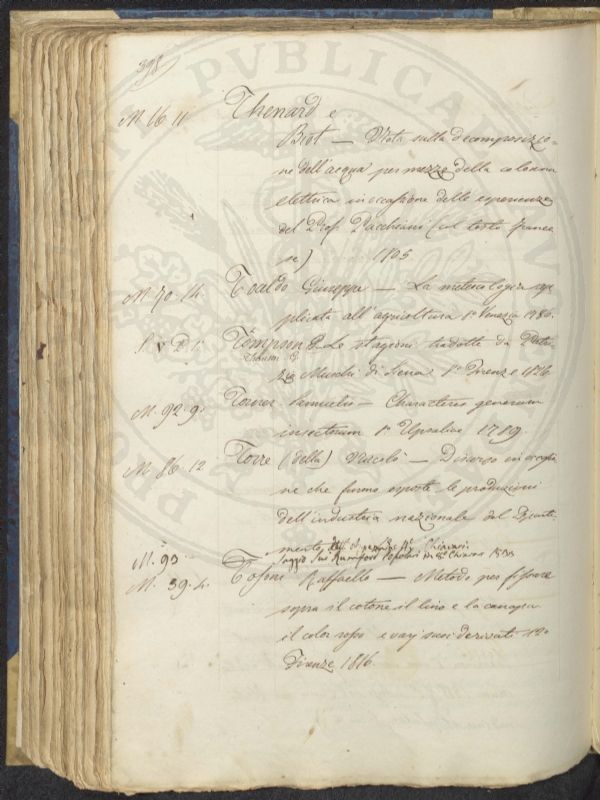 398
M 16 11 Thenard e
Biot — Nota sulla decomposizio-
ne dell'acqua per mezzo della colonna
elettrica in occasione delle esperienze
del Prof. Pacchiani (col testo france
se) 1805
M. 70. 14. Toaldo Giuseppe — La meteorologia ap
plicata all'agricoltura 8° Venezia 1786.
Tompson Le stagioni tradotte da Patri-
zio Muschi di Siena 8° Firenze 1826
M. 92. 9. Torner Samuelis — Characteres generum
insectorum 8° Upsaliae 1789.
M 86. 12 Torre (della) Niccolò — Discorso in occasio
ne che furono esposte le produzioni
dell'industria nazionale del Diparti-
mento Chiavari
Saggio sui Rumford
M. 93
M. 39. 4. Tosoni Raffaello — Metodo per fissare
sopra il cotone il lino e la canapa
il color rosso e varj suoi derivati 12°
Firenze 1816.
PVBLICA